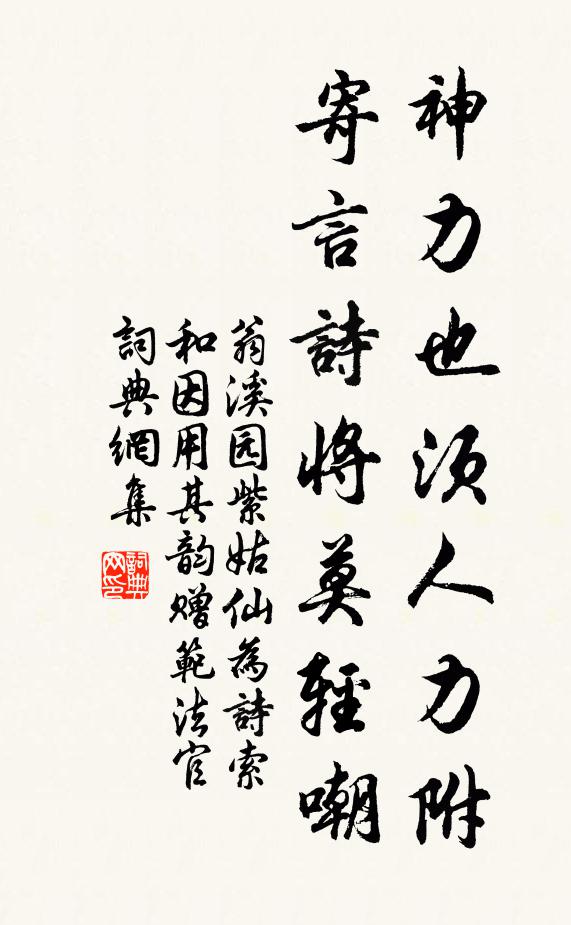 神力也須人力附
寄言詩將莫輕嘲
翁溪园紫姑仙為詩索
和因用其韵赠範法官
詞典網集
詞典網印